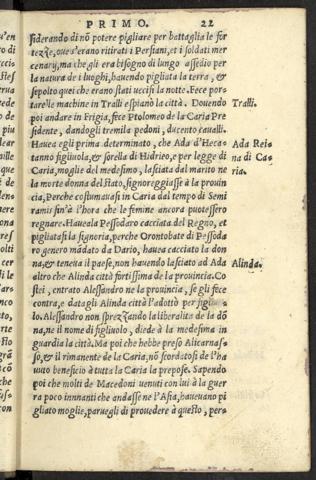 PRIMO. 22
siderando di nõ potere pigliare per battaglia le for
tezze, oue s'erano ritirati i Persiani, et i soldati mer
cenary, ma che gli era bisogno di lungo assedio per
la natura de i luoghi, hauendo pigliata la terra, &
sepolto quei che erano stati uccisi la notte. Fece por
tar elle machine in Tralli espianò la città. Douendo
Tralli.
poi andare in Frigia, fece Ptolomeo de la Caria Pre
sidente, dandogli tremila pedoni, ducento cavalli.
Hauea egli prima determinato, che Ada d'Heca-
Ada Rei
tanno figliuola, & sorella di Hidrieo, e per legge di
na di Ca
Caria, moglie del medesimo, lasciata dal marito ne
ria.
la morte donna del stato, signoreggiasse à la prouin
cia, Perche costumauasi in Caria dal tempo di Semi
ramis fin'à l'hora che le femine ancora puotessero
regnare. Haueala Pessodaro cacciata del Regno, et
pigliatasi la signoria, perche Orontobate di Pessoda
ro genero mãdato da Dario, hauea cacciato la don
na, & teneua il paese, non hauendo lasciato ad Ada
altro che Alinda città fortissima de la prouincia. Co
Alinda.
stei, entrato Alessandro ne la prouincia, se gli fece
contra, e datagli Alinda città l'adottò per figliuo-
lo. Alessandro non sprezzando la liberalità de la dõ
na, ne il nome di figliuolo, diede à la medesima in
guardia la città. Ma poi che hebbe preso Alicarnas-
so, & il rimanente de la Caria, nõ scordatosi de l'ha
uuto beneficio à tutta la Caria la prepose. Sapendo
poi che molti de Macedoni uenuti con lui à la guer
ra poco innnanti che andasse ne l'Asia, haueuano pi
gliato moglie, paruegli di prouedere à questo, pers-